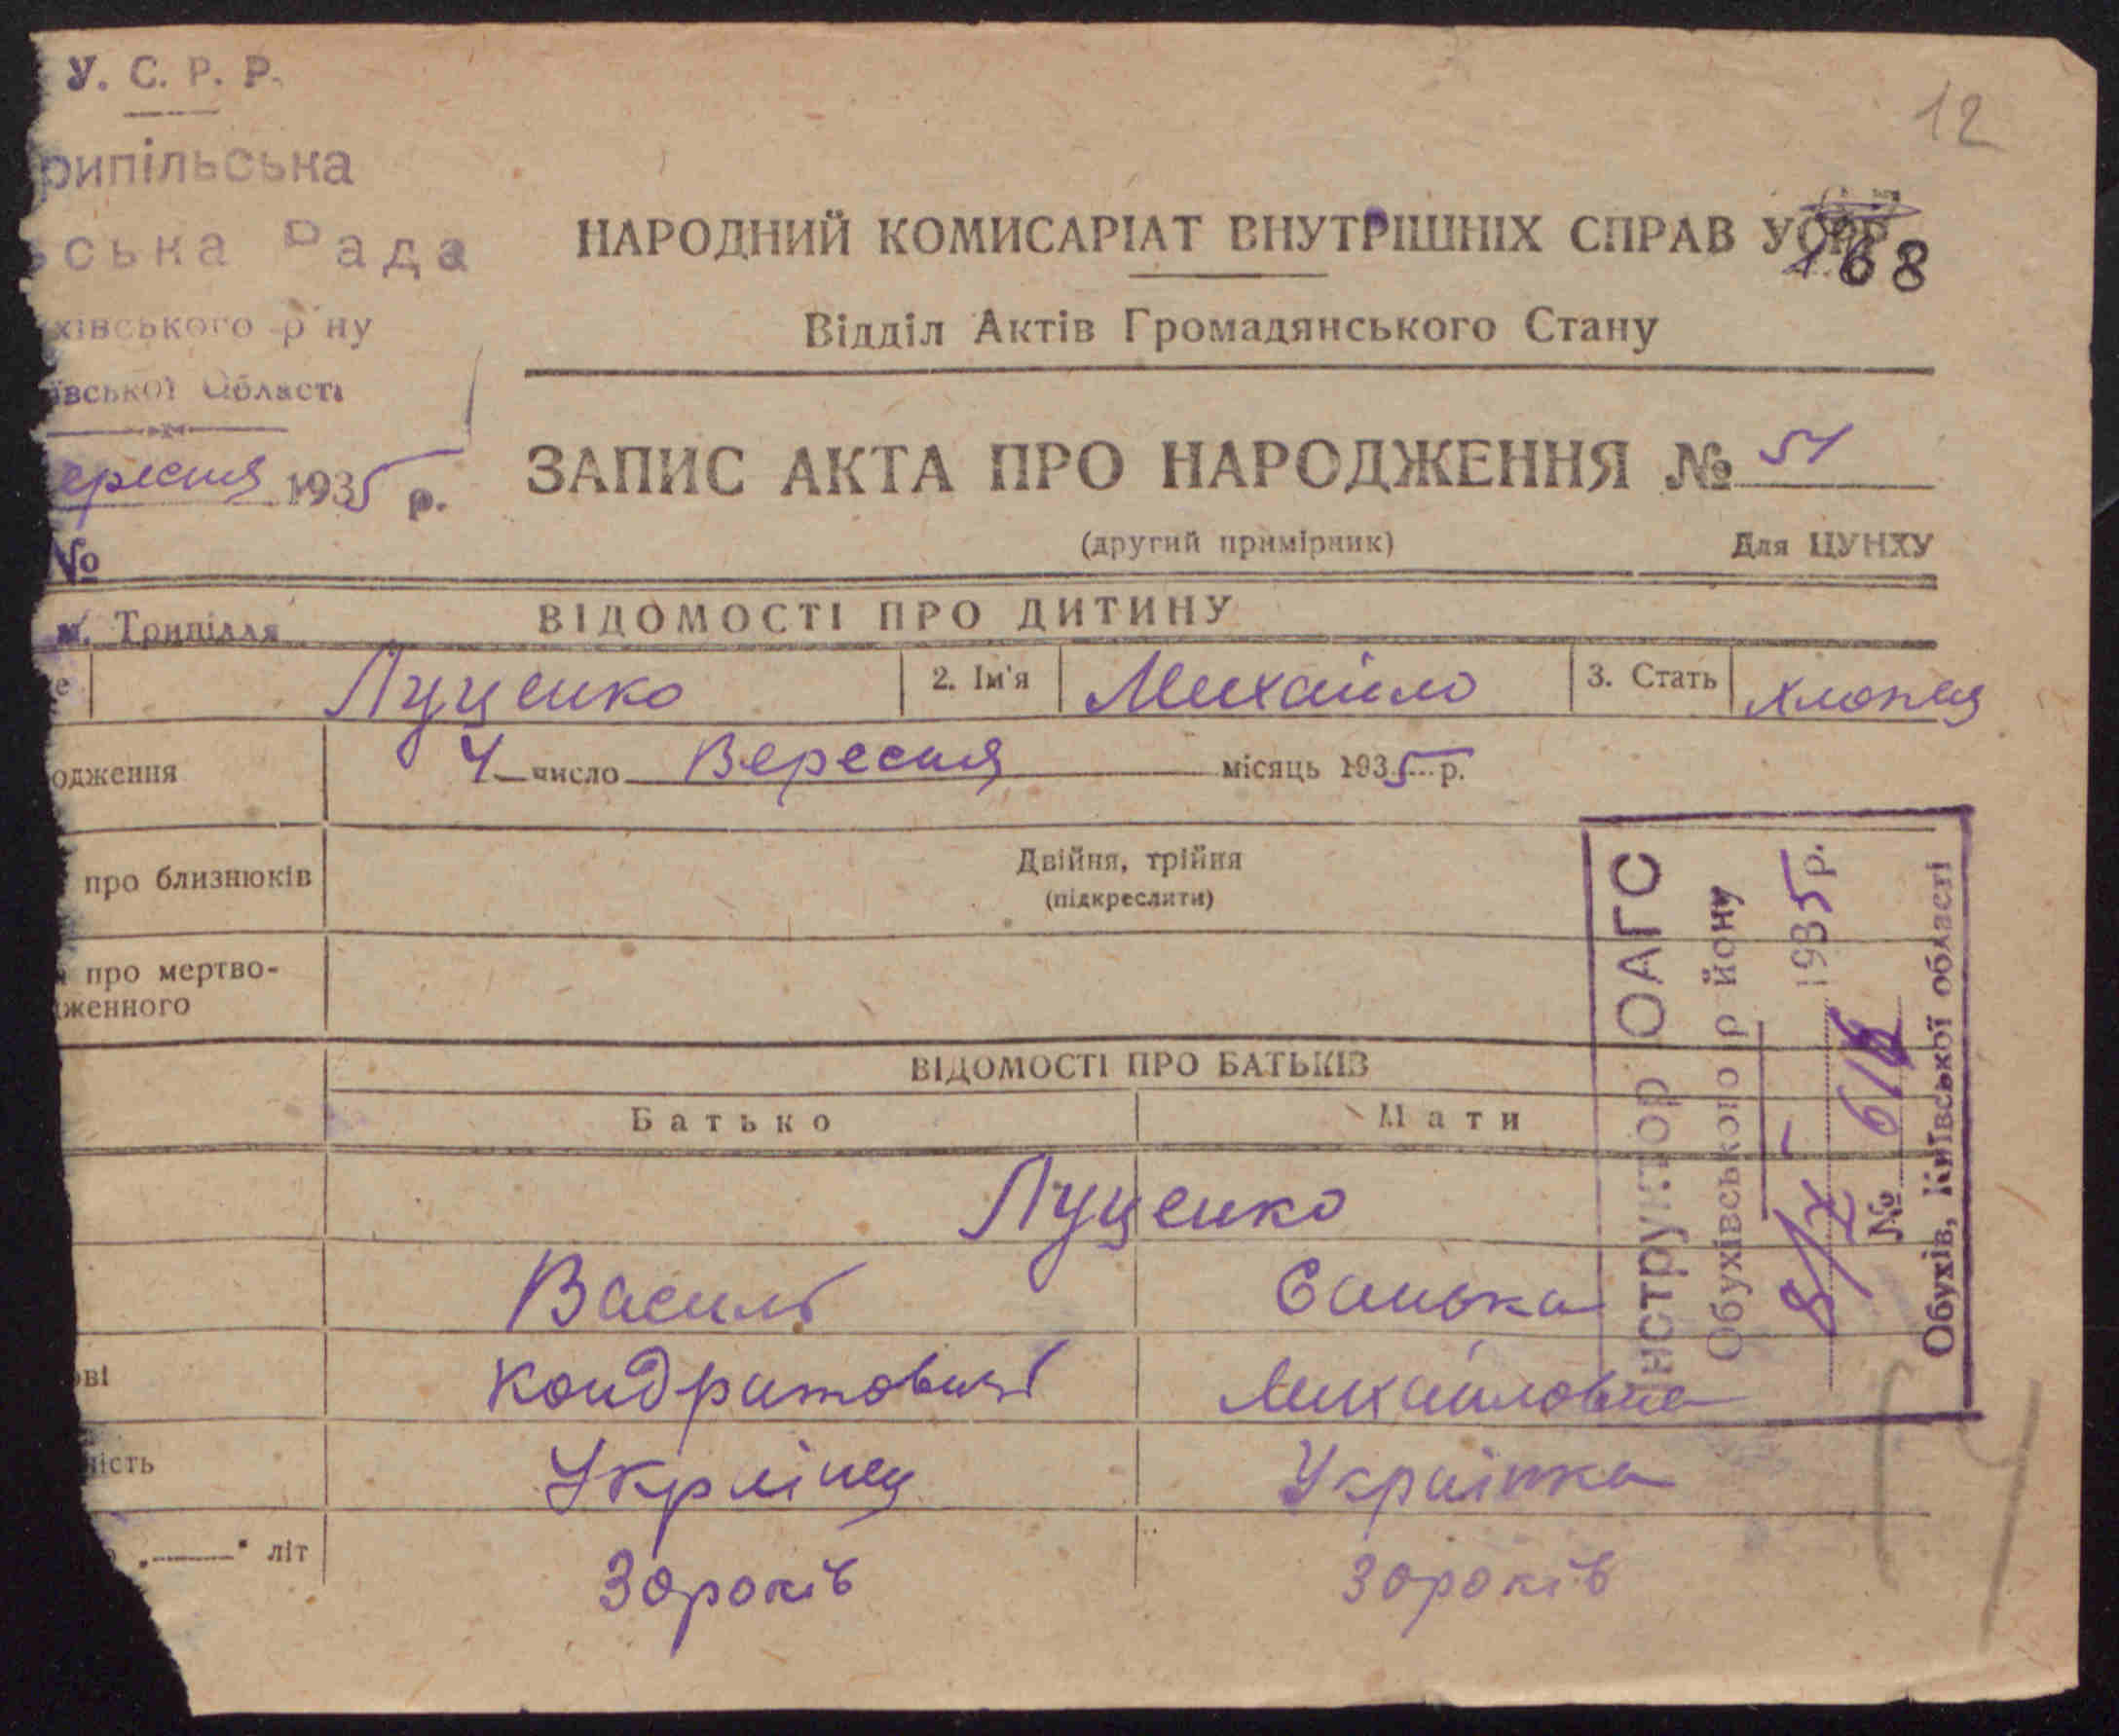 У. С. Р. Р.
рипільська
ська Рада
хівського р ну
ївської Області
ересня 1935 р.
№
м. Трипілля
12
НАРОДНИЙ КОМИСАРІАТ ВНУТРІШНІХ СПРАВ УСРР
168
Відділ Актів Громадянського Стану
ЗАПИС АКТА ПРО НАРОДЖЕННЯ № 51
(другий примірник) Для ЦУНХУ
ВІДОМОСТІ ПРО ДИТИНУ
е Луценко 2. Ім'я Михайло 3. Стать хлопец
одження 4 число Вересня місяць 1935 р.
про близнюків Двійня, трійня
(підкреслити)
про мертво-
женного
ВІДОМОСТІ ПРО БАТЬКІВ
Батько Мати
Луценко
Василь Ганька
ові Кондратович Михайловна
ність Украінец Украінка
„——" літ 30 років 30 років
нструктор ОАГС
Обухівського р йону
8/X 1935 р.
№
Обухів, Київської області